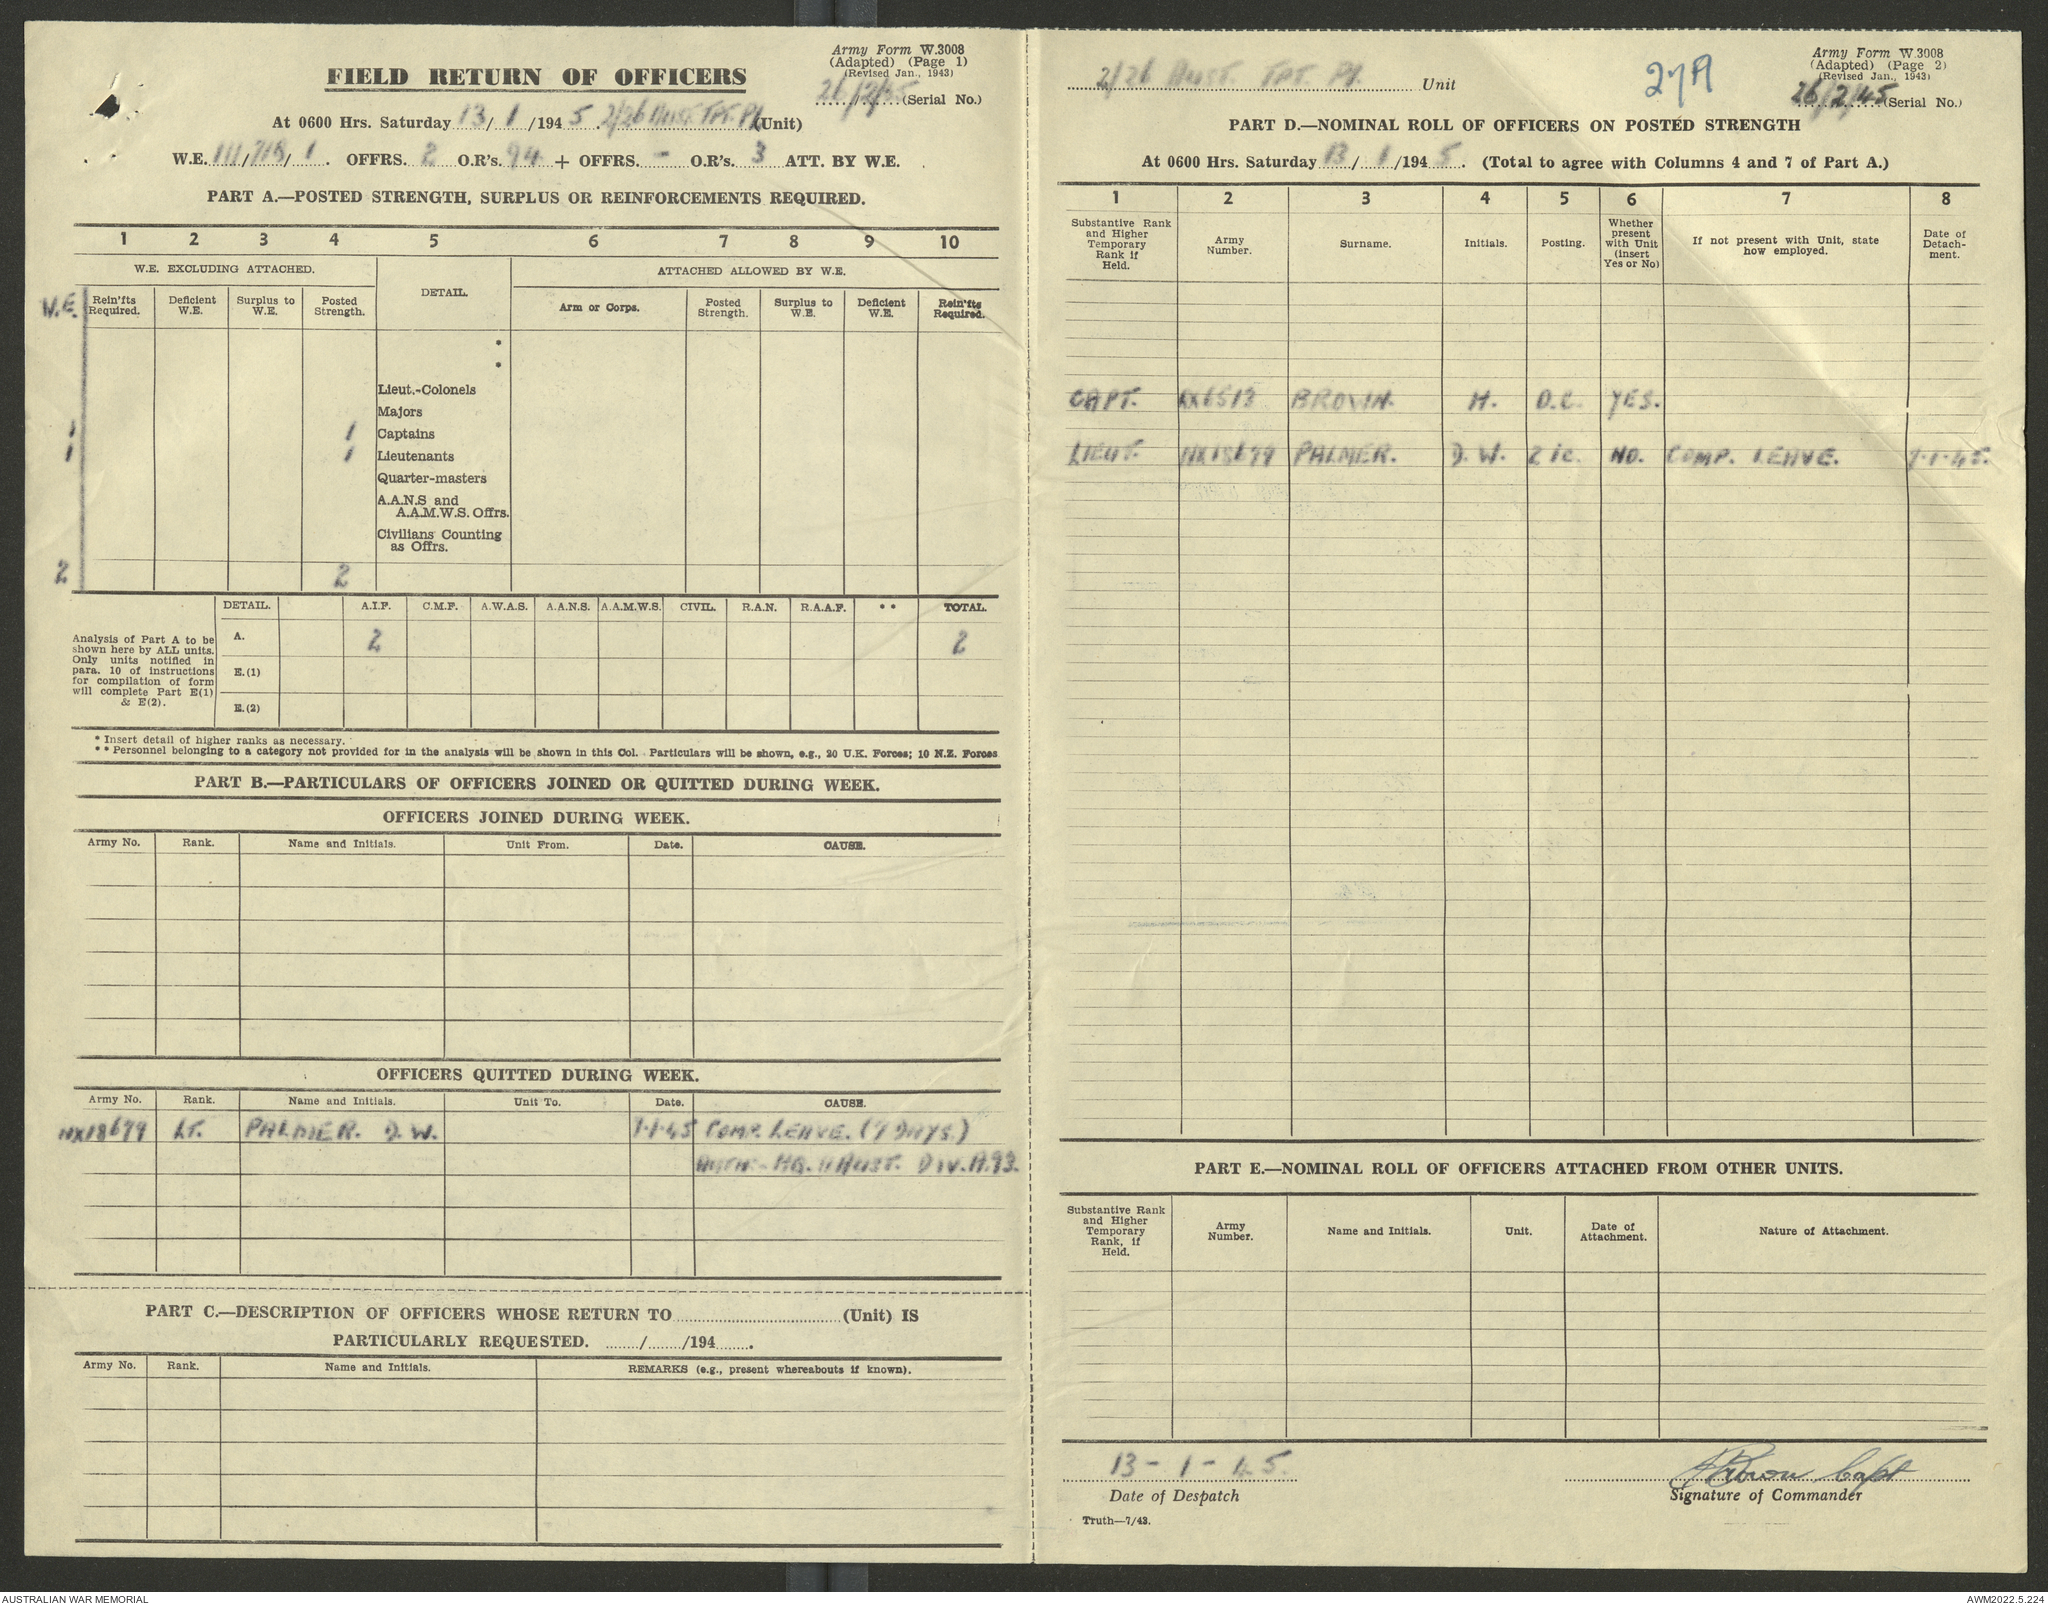 Army Form W.3008
(Adapted) (Page 1)
(Revised Jan., 1943)
FIELD RETURN OF OFFICERS
26/2/45 (Serial No.)
At 0600 Hrs. Saturday 13/1/1945. 2/26 AUST. TPT. Pl. (Unit)
W.E. 111/718/1. OFFRS. 2 O.R's. 94 + OFFRS. - O.R's. 3 ATT. BY W.E.
PART A.—POSTED STRENGTH, SURPLUS OR REINFORCEMENTS REQUIRED.
1 2 3 4 5 6 7 8 9 10
W.E. EXCLUDING ATTACHED. DETAIL. ATTACHED ALLOWED BY W.E.
W.E. Rein'fts Required. Deficient W.E. Surplus to W.E. Posted Strength. Arm or Corps. Posted Strength. Surplus to W.E. Deficient W.E. Rein'fts Required.
*
*
Lieut.-Colonels
Majors
1 1 Captains
1 1 Lieutenants
Quarter-masters
A.A.N.S and
A.A.M.W.S. Offrs.
Civilians Counting
as Offrs.
2 2
DETAIL. A.I.F. C.M.F. A.W.A.S. A.A.N.S. A.A.M.W.S. CIVIL. R.A.N. R.A.A.F. ** TOTAL.
Analysis of Part A to be
shown here by ALL units.
Only units notified in
para. 10 of instructions
for compilation of form
will complete Part E(1)
& E(2).
A. 2 2
E.(1)
E.(2)
* Insert detail of higher ranks as necessary.
** Personnel belonging to a category not provided for in the analysis will be shown in this Col. Particulars will be shown, e.g., 20 U.K. Forces; 10 N.Z. Forces
PART B.—PARTICULARS OF OFFICERS JOINED OR QUITTED DURING WEEK.
OFFICERS JOINED DURING WEEK.
Army No. Rank. Name and Initials. Unit From. Date. CAUSE.
OFFICERS QUITTED DURING WEEK.
Army No. Rank. Name and Initials. Unit To. Date. CAUSE.
NX18679 LT. PALMER. D. W. 7-1-45 COMP. LEAVE. (7 DAYS.)
AUTH:- HQ. 11 AUST. DIV. A.93.
PART C.—DESCRIPTION OF OFFICERS WHOSE RETURN TO (Unit) IS
PARTICULARLY REQUESTED. / /194 .
Army No. Rank. Name and Initials. REMARKS (e.g., present whereabouts if known).
Army Form W.3008
(Adapted) (Page 2)
(Revised Jan., 1943)
2/26 AUST. TPT. Pl. Unit
27A
26/2/45 (Serial No.)
PART D.—NOMINAL ROLL OF OFFICERS ON POSTED STRENGTH
At 0600 Hrs. Saturday 13/1/1945. (Total to agree with Columns 4 and 7 of Part A.)
1 2 3 4 5 6 7 8
Substantive Rank and Higher Temporary Rank if Held. Army Number. Surname. Initials. Posting. Whether present with Unit (insert Yes or No) If not present with Unit, state how employed. Date of Detachment.
CAPT. BROWN. H. O.C. YES.
LIEUT. NX18679 PALMER. D. W. 2 i c. NO. COMP. LEAVE. 7-1-45.
PART E.—NOMINAL ROLL OF OFFICERS ATTACHED FROM OTHER UNITS.
Substantive Rank and Higher Temporary Rank, if Held. Army Number. Name and Initials. Unit. Date of Attachment. Nature of Attachment.
13 - 1 - 45.
HBrown Capt
Date of Despatch
Signature of Commander
Truth—7/43.
AUSTRALIAN WAR MEMORIAL
AWM2022.5.224